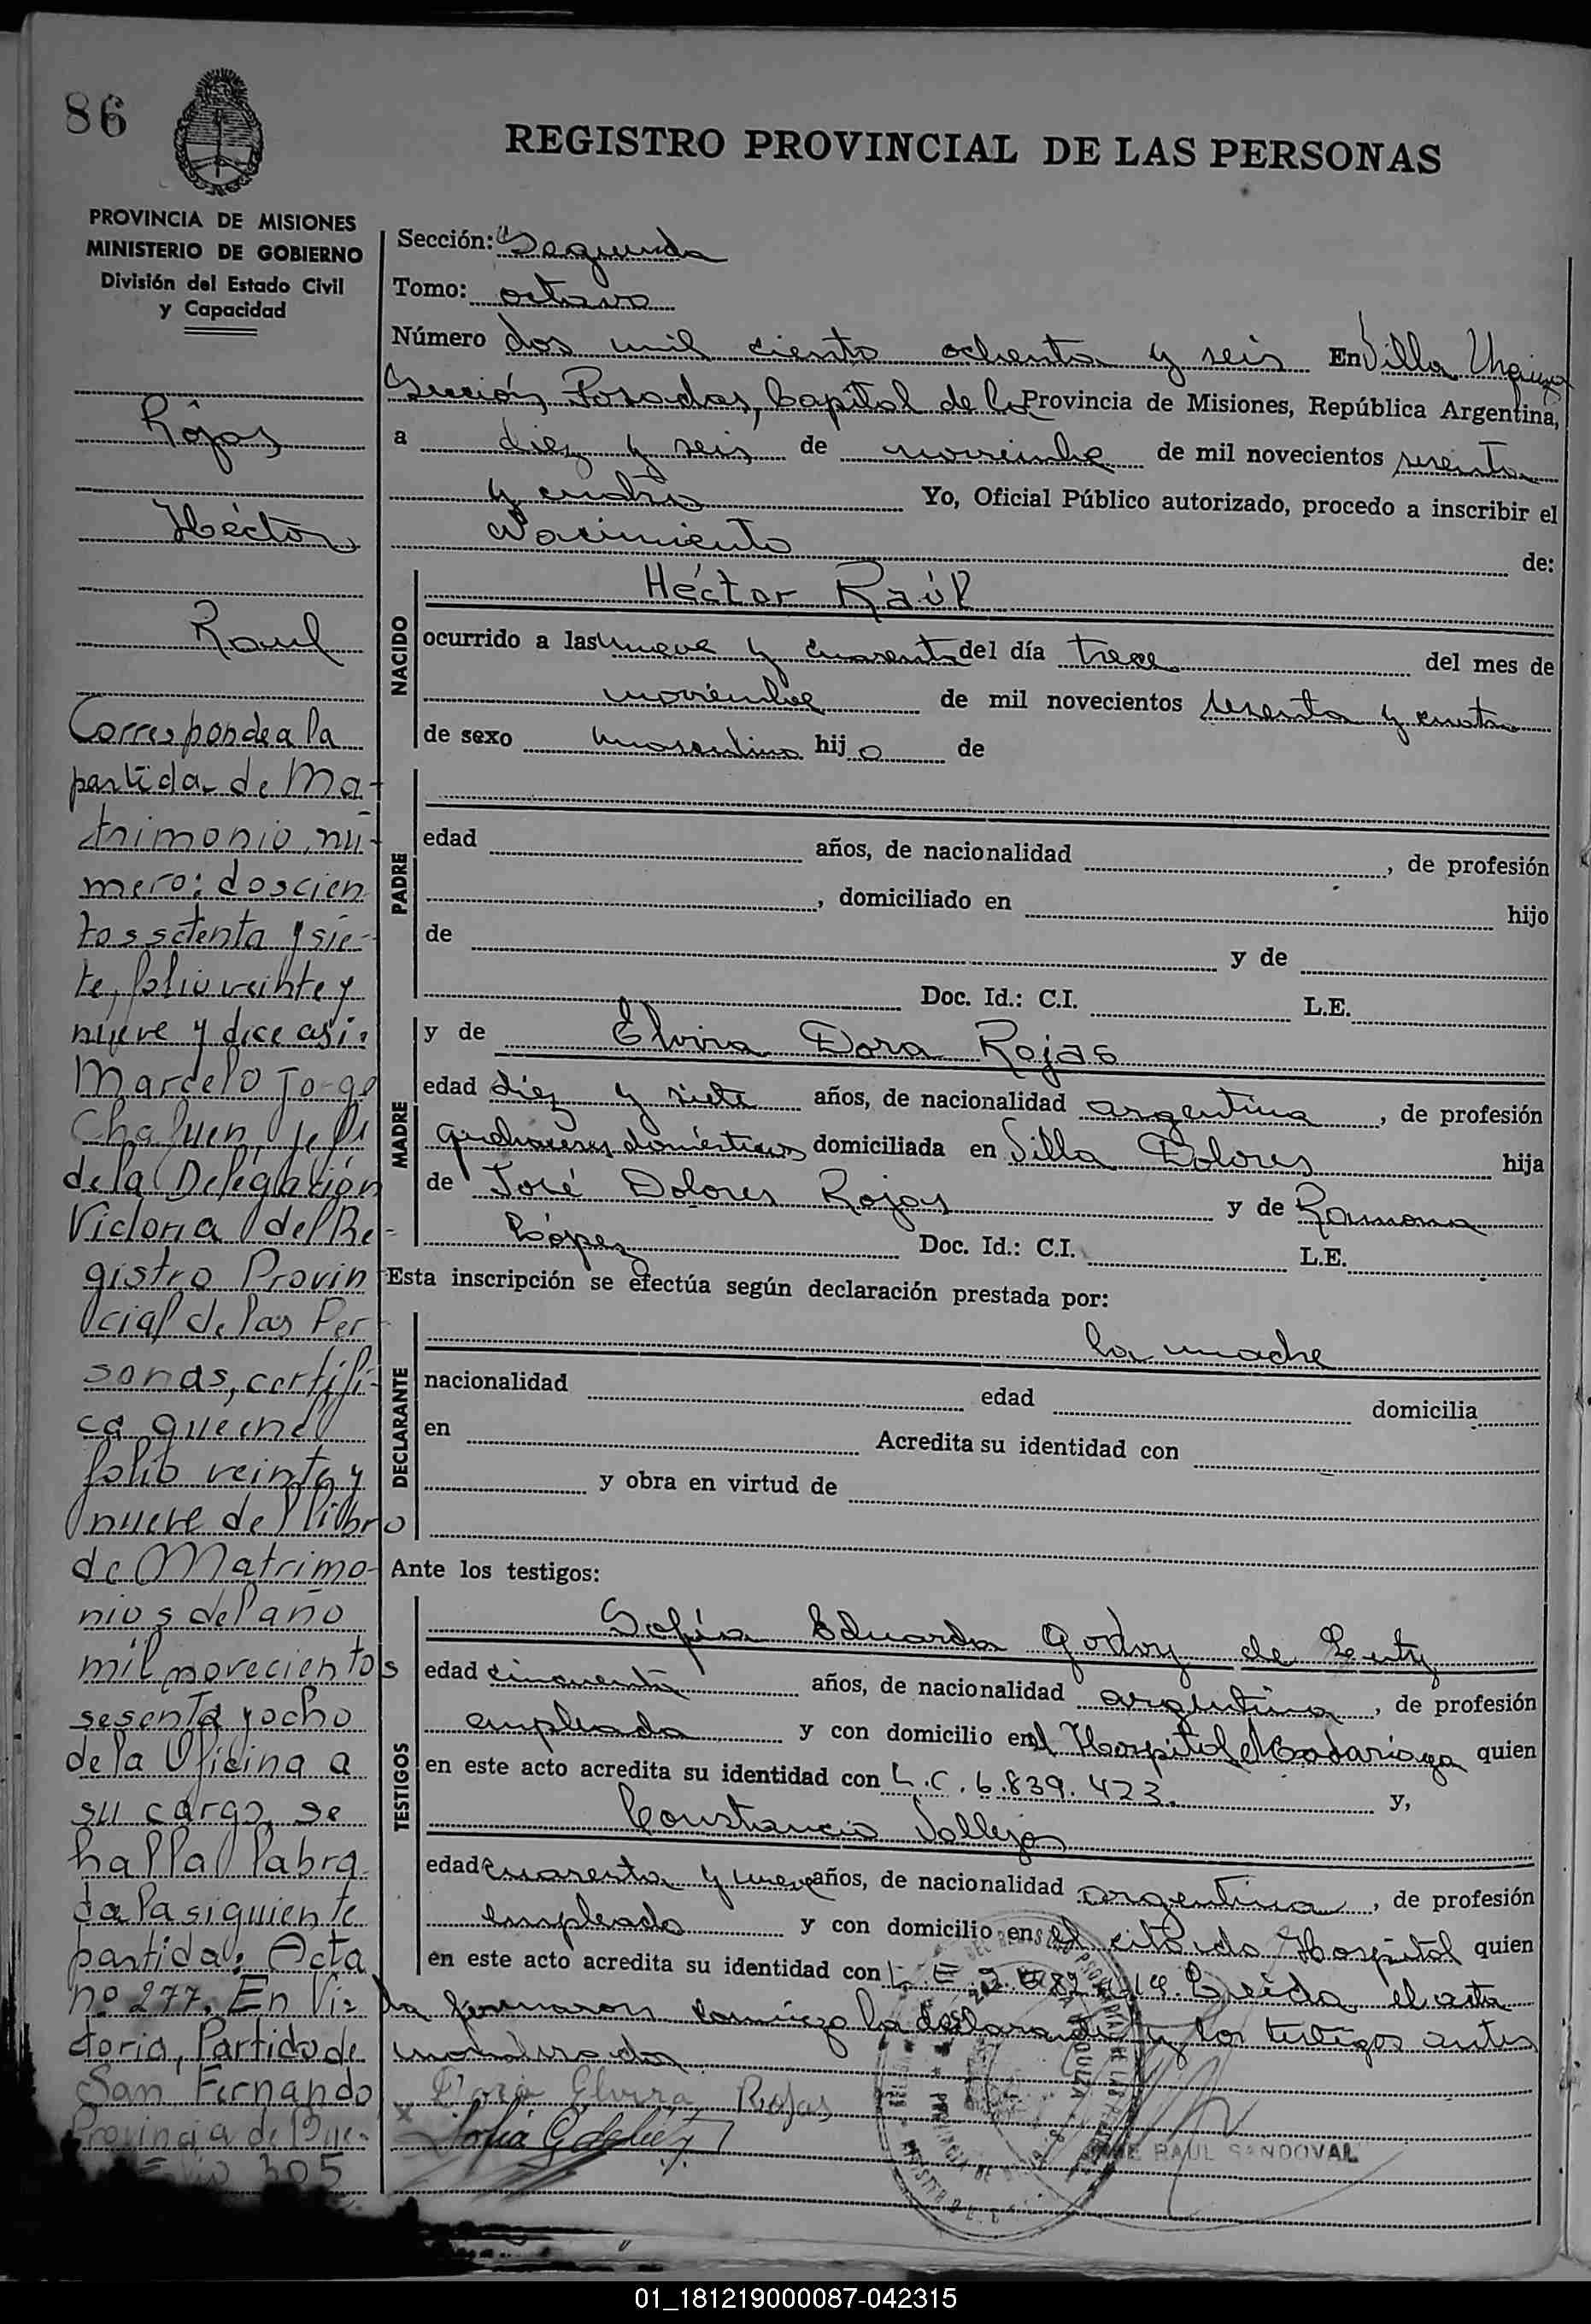 86
REGISTRO PROVINCIAL DE LAS PERSONAS
PROVINCIA DE MISIONES
MINISTERIO DE GOBIERNO
División del Estado Civil
y Capacidad
Rojas
Héctor
Raul
Corresponde a la
partida de Ma-
trimonio nú-
mero: doscien
tos setenta y sie-
te, folio veinte y
nueve y dice así:
Marcelo Jorge
Chafuen, jefe
de la Delegación
Victoria del Re-
gistro Provin
cial de las Per
sonas, certifi-
ca que en el
folio veinte y
nueve del libro
de Matrimo-
nios del año
mil novecientos
sesenta y ocho
de la Oficina a
su cargo, se
halla labra-
da la siguiente
partida: Acta
nº 277. En Vic-
toria, Partido de
San Fernando
Provincia de Bue-
305
Sección: Segunda
Tomo: octavo
Número dos mil ciento ochenta y seis En Villa Urquiza
Sección Posadas, Capital de la Provincia de Misiones, República Argentina,
a diez y seis de noviembre de mil novecientos sesenta
y cuatro Yo, Oficial Público autorizado, procedo a inscribir el
Nacimiento de:
NACIDO
Héctor Raúl
ocurrido a las nueve y cuarenta del día trece del mes de
noviembre de mil novecientos sesenta y cuatro
de sexo masculino hijo de
PADRE
edad años, de nacionalidad , de profesión
, domiciliado en hijo
de y de
Doc. Id.: C.I. L.E.
MADRE
y de Elvira Dora Rojas
edad diez y siete años, de nacionalidad argentina, de profesión
quehaceres domésticos domiciliada en Villa Dolores hija
de José Dolores Rojas y de Ramona
López Doc. Id.: C.I. L.E.
Esta inscripción se efectúa según declaración prestada por:
DECLARANTE
la madre
nacionalidad edad domicilia
en Acredita su identidad con
y obra en virtud de
Ante los testigos:
TESTIGOS
Sofía Eduarda Godoy de
edad cincuenta años, de nacionalidad argentina, de profesión
empleada y con domicilio en el Hospital Madariaga quien
en este acto acredita su identidad con L.C. 6.839.423. y,
Constancio Vallejos
edad cuarenta y nueve años, de nacionalidad argentina, de profesión
empleado y con domicilio en el citado Hospital quien
en este acto acredita su identidad con L.E. Leída el acta
la firmaron conmigo la declarante y los testigos antes
nombrados
Dora Elvira Rojas
Sofía G de
RAUL SANDOVAL
01_181219000087-042315